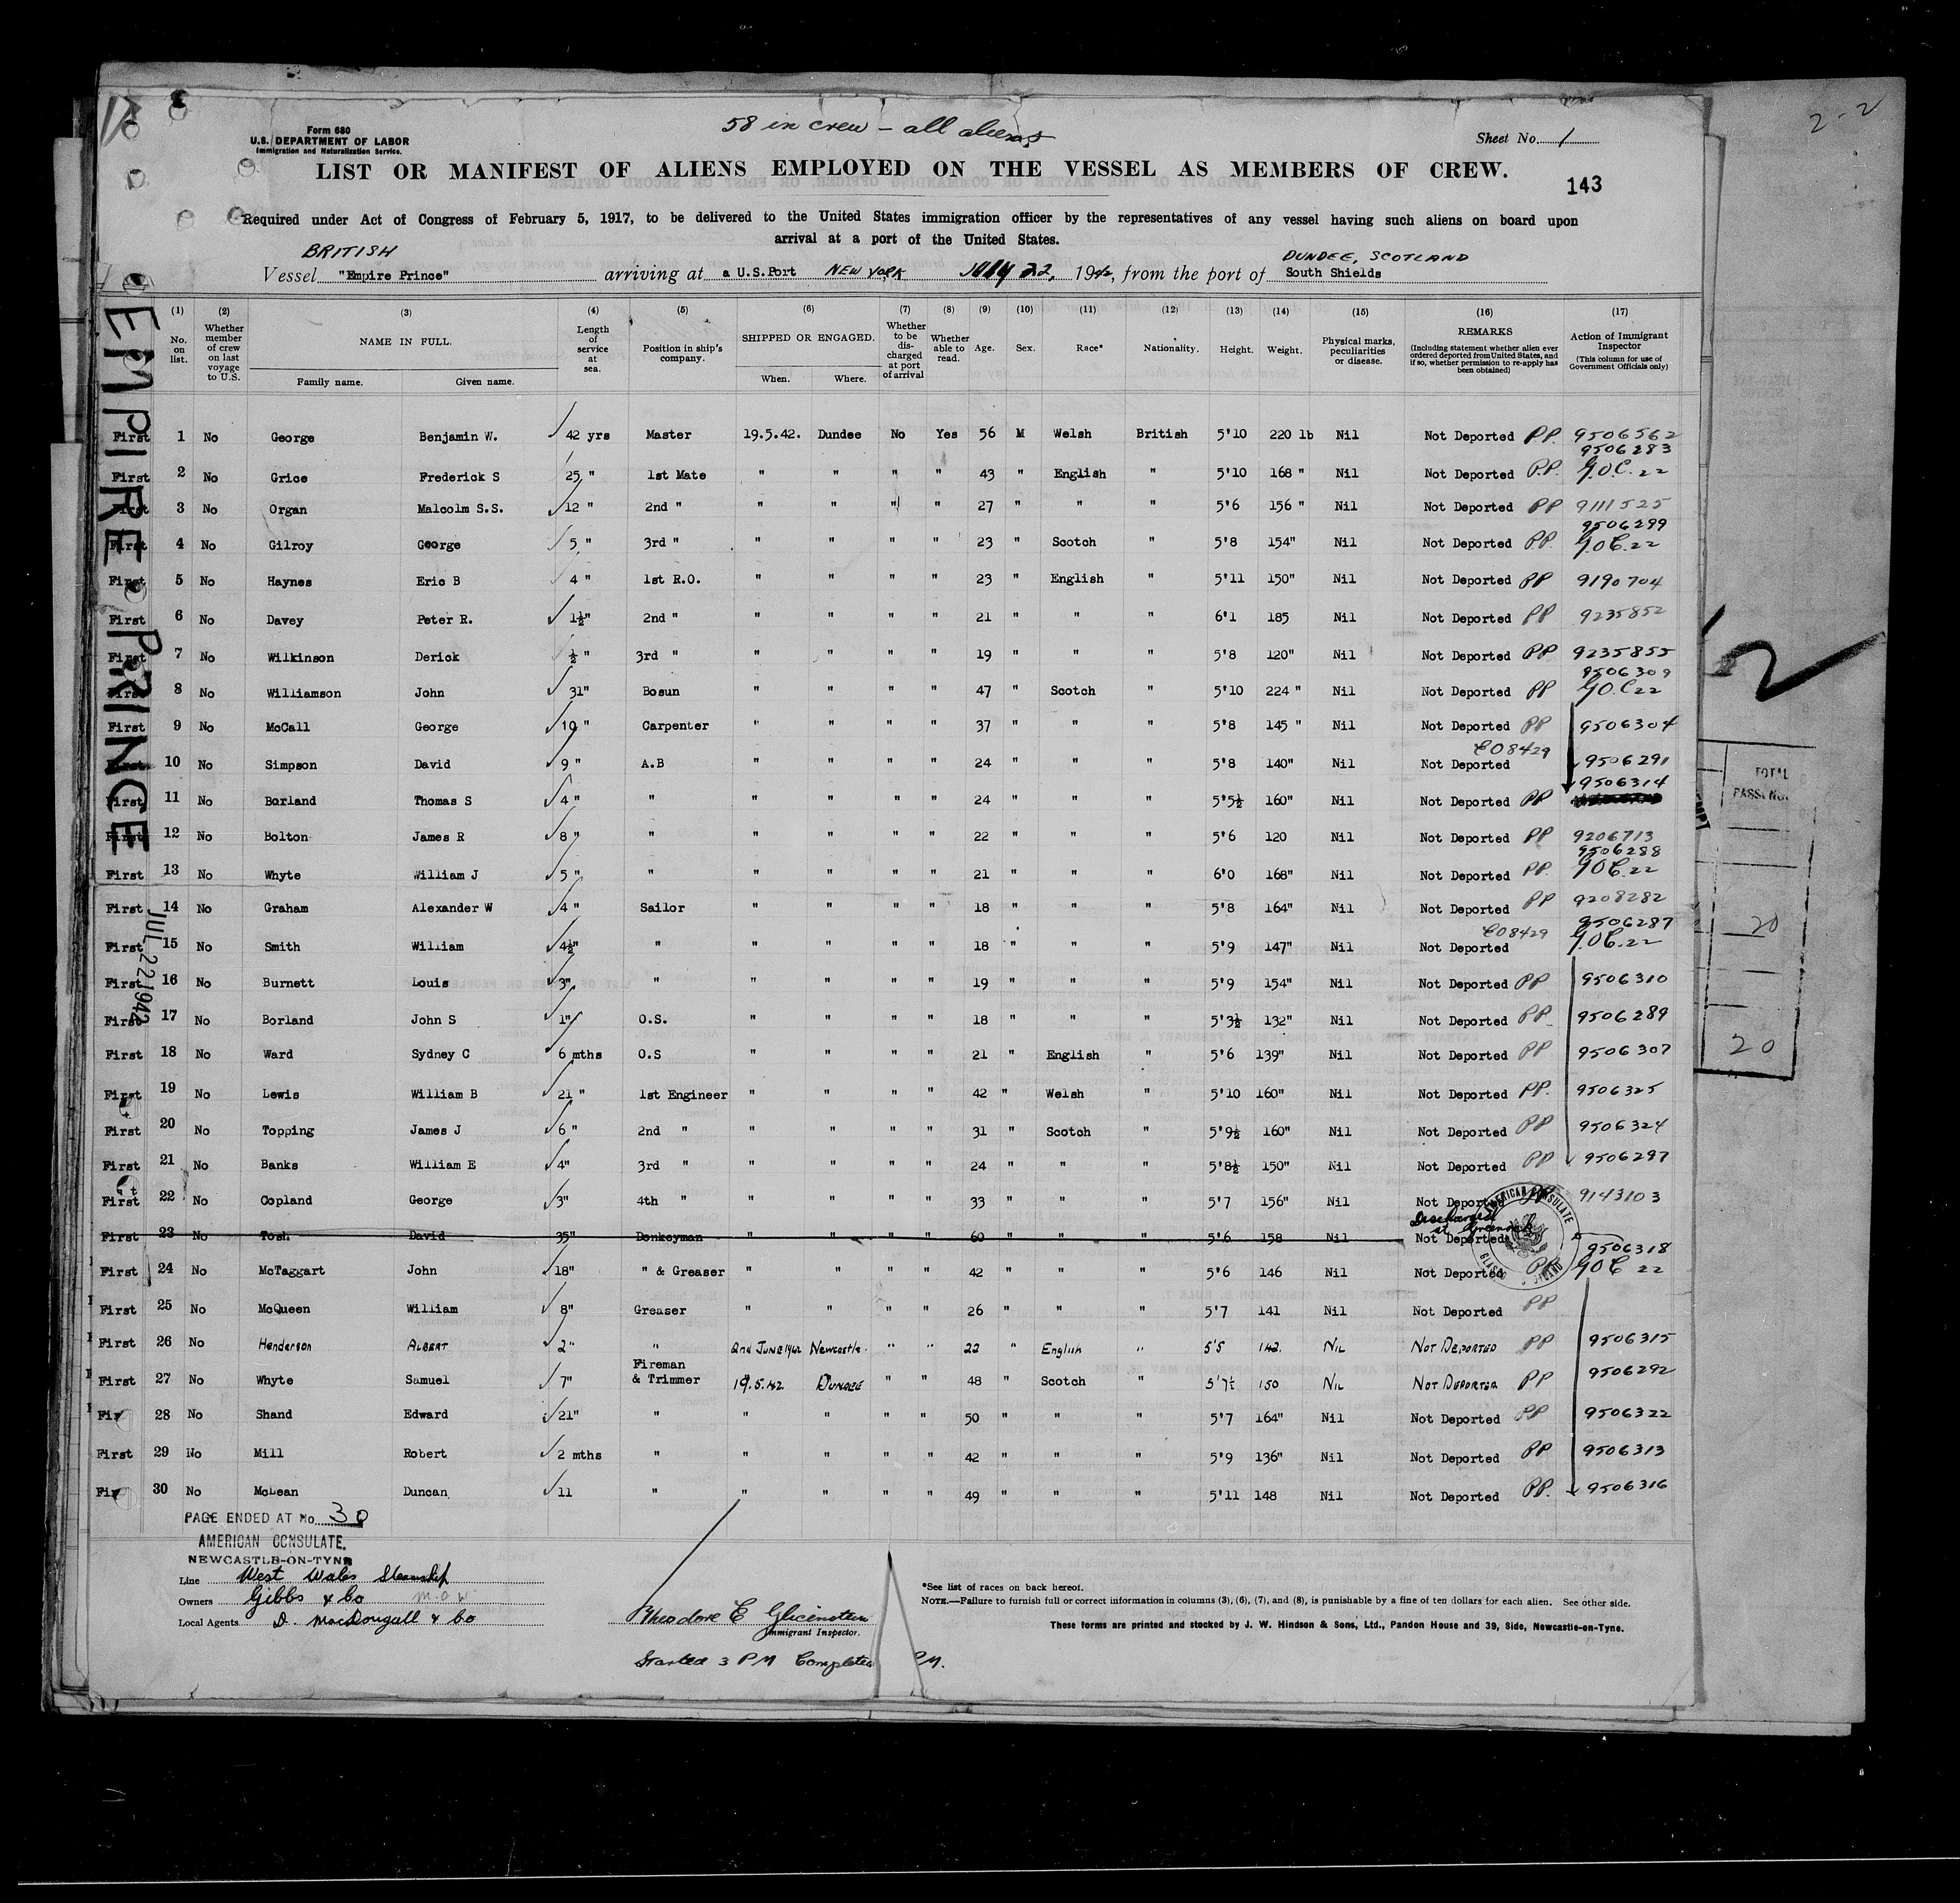 17
2-2
58 in crew - all aliens
Form 680
U.S. DEPARTMENT OF LABOR
Immigration and Naturalization Service.
Sheet No. 1
LIST OR MANIFEST OF ALIENS EMPLOYED ON THE VESSEL AS MEMBERS OF CREW.
143
Required under Act of Congress of February 5, 1917, to be delivered to the United States immigration officer by the representatives of any vessel having such aliens on board upon
arrival at a port of the United States.
BRITISH DUNDEE, SCOTLAND
Vessel "Empire Prince" arriving at a U.S.Port NEW YORK July 22, 1942, from the port of South Shields
EMPIRE PRINCE
JUL 22 1942
(1) No. on list. (2) Whether member of crew on last voyage to U.S. (3) NAME IN FULL. Family name. Given name. (4) Length of service at sea. (5) Position in ship's company. (6) SHIPPED OR ENGAGED. When. Where. (7) Whether to be discharged at port of arrival (8) Whether able to read. (9) Age. (10) Sex. (11) Race* (12) Nationality. (13) Height. (14) Weight. (15) Physical marks, peculiarities or disease. (16) REMARKS (Including statement whether alien ever ordered deported from United States, and if so, whether permission to re-apply has been obtained) (17) Action of Immigrant Inspector (This column for use of Government Officials only)
First 1 No George Benjamin W. 42 yrs Master 19.5.42. Dundee No Yes 56 M Welsh British 5'10 220 lb Nil Not Deported PP. 9506562
9506283
First 2 No Grice Frederick S 25 " 1st Mate " " " " 43 " English " 5'10 168 " Nil Not Deported P.P. G.O.C. 22
First 3 No Organ Malcolm S.S. 12 " 2nd " " " " " 27 " " " 5'6 156 " Nil Not Deported PP 9111525
9506299
First 4 No Gilroy George 5 " 3rd " " " " " 23 " Scotch " 5'8 154" Nil Not Deported PP. G.O.C. 22
First 5 No Haynes Eric B 4 " 1st R.O. " " " " 23 " English " 5'11 150" Nil Not Deported PP 9190704
First 6 No Davey Peter R. 1½" 2nd " " " " " 21 " " " 6'1 185 Nil Not Deported PP 9235852
First 7 No Wilkinson Derick ½ " 3rd " " " " " 19 " " " 5'8 120" Nil Not Deported PP 9235855
9506309
First 8 No Williamson John 31" Bosun " " " " 47 " Scotch " 5'10 224 " Nil Not Deported PP G.O.C 22
First 9 No McCall George 19 " Carpenter " " " " 37 " " " 5'8 145 " Nil Not Deported PP 9506304
C08429
First 10 No Simpson David 9 " A.B " " " " 24 " " " 5'8 140" Nil Not Deported 9506291
9506314
First 11 No Borland Thomas S 4 " " " " " " 24 " " " 5'5½ 160" Nil Not Deported PP
First 12 No Bolton James R 8 " " " " " " 22 " " " 5'6 120 Nil Not Deported PP 9206713
9506288
First 13 No Whyte William J 5 " " " " " " 21 " " " 6'0 168" Nil Not Deported PP. G.O.C. 22
First 14 No Graham Alexander W 4 " Sailor " " " " 18 " " " 5'8 164" Nil Not Deported PP 9208282
C08429 9506287
First 15 No Smith William 4½" " " " " " 18 " " " 5'9 147" Nil Not Deported G.O.C. 22
First 16 No Burnett Louis 3" " " " " " 19 " " " 5'9 154" Nil Not Deported PP 9506310
First 17 No Borland John S 1" O.S. " " " " 18 " " " 5'3½ 132" Nil Not Deported PP 9506289
First 18 No Ward Sydney C 6 mths O.S " " " " 21 " English " 5'6 139" Nil Not Deported PP 9506307
First 19 No Lewis William B 21 " 1st Engineer " " " " 42 " Welsh " 5'10 160" Nil Not Deported PP. 9506325
First 20 No Topping James J 6 " 2nd " " " " " 31 " Scotch " 5'9½ 160" Nil Not Deported PP 9506324
First 21 No Banks William E 4" 3rd " " " " " 24 " " " 5'8½ 150" Nil Not Deported PP 9506297
First 22 No Copland George 3" 4th " " " " " 33 " " " 5'7 156" Nil Not Deported PP 9143103
Discharged at Greenock
First 23 No Tosh David 35" Donkeyman " " " " 60 " " " 5'6 158 Nil Not Deported
AMERICAN CONSULATE
9506318
First 24 No McTaggart John 18" " & Greaser " " " " 42 " " " 5'6 146 Nil Not Deported PP G.O.C 22
First 25 No McQueen William 8" Greaser " " " " 26 " " " 5'7 141 Nil Not Deported PP
First 26 No Henderson ALBERT 2" " 2nd June 1942 Newcastle " " 22 " English " 5'5 142. NIL NOT DEPORTED PP 9506315
First 27 No Whyte Samuel 7" Fireman & Trimmer 19.5.42 DUNDEE " " 48 " Scotch " 5'7½ 150 NIL NOT DEPORTED PP 9506292
Fir 28 No Shand Edward 21" " " " " " 50 " " " 5'7 164" Nil Not Deported PP 9506322
First 29 No Mill Robert 2 mths " " " " " 42 " " " 5'9 136" Nil Not Deported PP 9506313
Fir 30 No McLean Duncan 11 " " " " " 49 " " " 5'11 148 Nil Not Deported PP. 9506316
TOTAL
PASSENG
20
20
PAGE ENDED AT No. 30
AMERICAN CONSULATE,
NEWCASTLE-ON-TYNE
Line West Wales Steamship
Owners Gibbs & Co
Local Agents D. MacDougall & Co
Theodore E Glicenstein
Immigrant Inspector.
Started 3 PM Completed PM.
*See list of races on back hereof.
NOTE.—Failure to furnish full or correct information in columns (3), (6), (7), and (8), is punishable by a fine of ten dollars for each alien. See other side.
These forms are printed and stocked by J. W. Hindson & Sons, Ltd., Pandon House and 39, Side, Newcastle-on-Tyne.